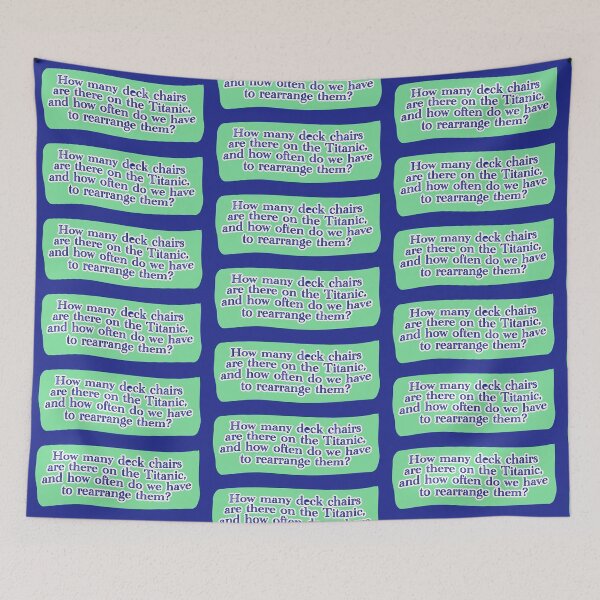 How many deck chairs
are there on the Titanic,
and how often do we have
to rearrange them?
How many deck chairs
are there on the Titanic,
and how often do we have
to rearrange them?
How many deck chairs
are there on the Titanic,
and how often do we have
to rearrange them?
How many deck chairs
are there on the Titanic,
and how often do we have
to rearrange them?
How many deck chairs
are there on the Titanic,
and how often do we have
to rearrange them?
How many deck chairs
are there on the Titanic,
and how often do we have
to rearrange them?
and how often do we have
to rearrange them?
How many deck chairs
are there on the Titanic,
and how often do we have
to rearrange them?
How many deck chairs
are there on the Titanic,
and how often do we have
to rearrange them?
How many deck chairs
are there on the Titanic,
and how often do we have
to rearrange them?
How many deck chairs
are there on the Titanic,
and how often do we have
to rearrange them?
How many deck chairs
are there on the Titanic,
and how often do we have
to rearrange them?
How many deck chairs
are there on the Titanic,
and how often do we have
How many deck chairs
are there on the Titanic,
and how often do we have
to rearrange them?
How many deck chairs
are there on the Titanic,
and how often do we have
to rearrange them?
How many deck chairs
are there on the Titanic,
and how often do we have
to rearrange them?
How many deck chairs
are there on the Titanic,
and how often do we have
to rearrange them?
How many deck chairs
are there on the Titanic,
and how often do we have
to rearrange them?
How many deck chairs
are there on the Titanic,
and how often do we have
to rearrange them?